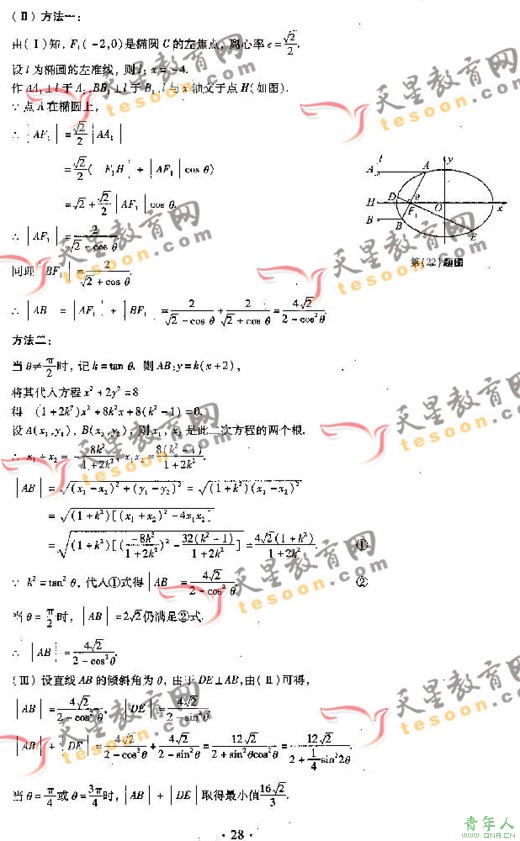 (Ⅱ) 方法一:
由(Ⅰ)知, F₁(-2,0)是椭圆 C 的左焦点, 离心率 e = √2/2.
设 l 为椭圆的左准线, 则 l: x = -4.
作 AA₁⊥l 于 A₁, BB₁⊥l 于 B₁, l 与 x 轴交于点 H(如图).
∵ 点 A 在椭圆上,
∴ |AF₁| = √2/2 |AA₁|
= √2/2 (|F₁H| + |AF₁| cos θ)
= √2 + √2/2 |AF₁| cos θ.
∴ |AF₁| = 2/(√2 - cos θ).
同理 |BF₁| = 2/(√2 + cos θ).
第(22)题图
∴ |AB| = |AF₁| + |BF₁| = 2/(√2 - cos θ) + 2/(√2 + cos θ) = 4√2/(2 - cos²θ).
方法二:
当 θ ≠ π/2 时, 记 k = tan θ. 则 AB: y = k(x+2),
将其代入方程 x² + 2y² = 8
得 (1+2k²)x² + 8k²x + 8(k²-1) = 0.
设 A(x₁,y₁), B(x₂,y₂), 则 x₁, x₂ 是此二次方程的两个根.
∴ x₁ + x₂ = -8k²/(1+2k²), x₁x₂ = 8(k²-1)/(1+2k²).
|AB| = √((x₁-x₂)² + (y₁-y₂)²) = √((1+k²)(x₁-x₂)²)
= √((1+k²)[(x₁+x₂)² - 4x₁x₂])
= √((1+k²)[(-8k²/(1+2k²))² - 32(k²-1)/(1+2k²)]) = 4√2(1+k²)/(1+2k²). ①
∵ k² = tan²θ, 代入①式得 |AB| = 4√2/(2 - cos²θ). ②
当 θ = π/2 时, |AB| = 2√2 仍满足②式.
∴ |AB| = 4√2/(2 - cos²θ).
(Ⅲ) 设直线 AB 的倾斜角为 θ, 由于 DE⊥AB, 由(Ⅱ)可得,
|AB| = 4√2/(2 - cos²θ), |DE| = 4√2/(2 - sin²θ)
|AB| + |DE| = 4√2/(2 - cos²θ) + 4√2/(2 - sin²θ) = 12√2/(2 + sin²θcos²θ) = 12√2/(2 + 1/4 sin²2θ).
当 θ = π/4 或 θ = 3π/4 时, |AB| + |DE| 取得最小值 16√2/3.
· 28 ·
天星教育网
tesoon.com
青年人
www.QNR.cn